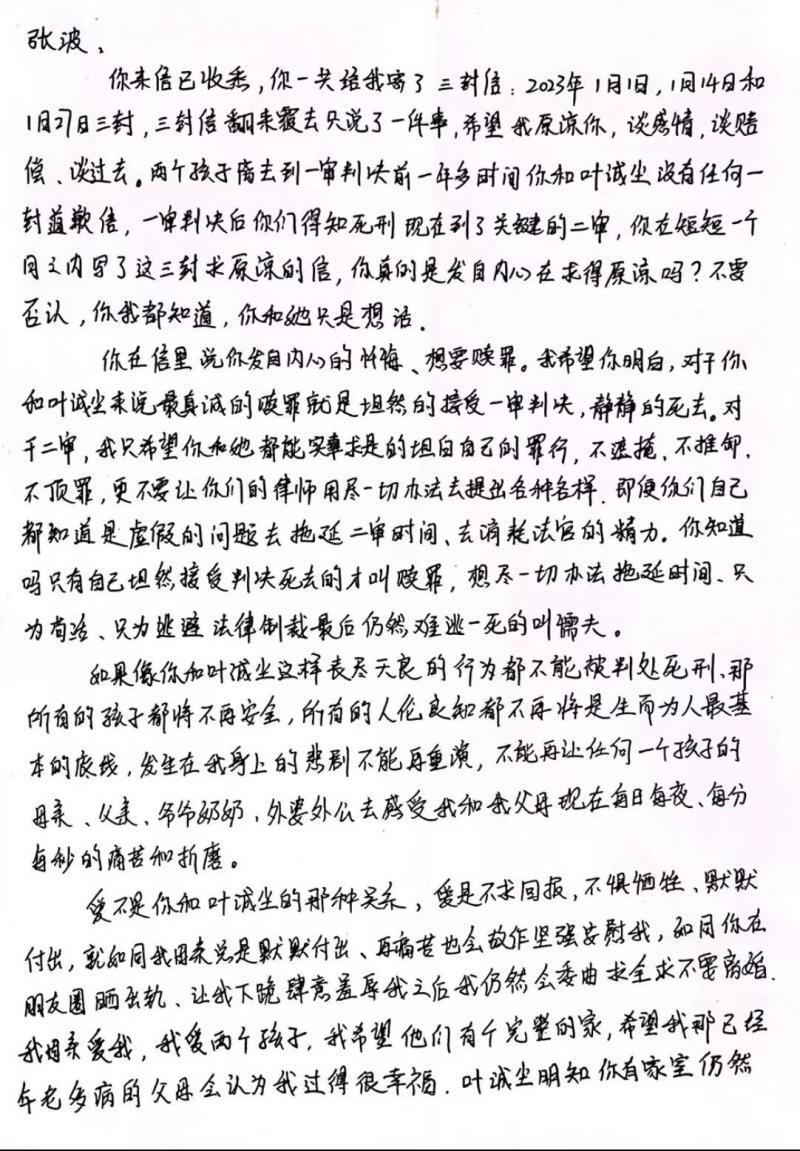 张波：
你来信已收悉，你一共给我寄了三封信：2023年1月1日，1月14日和
1月27日三封，三封信翻来覆去只说了一件事，希望我原谅你，谈感情，谈赔
偿、谈过去。两个孩子离去到一审判决前一年多时间你和叶诚尘没有任何一
封道歉信，一审判决后你们得知死刑现在到了关键的二审，你在短短一个
月之内写了这三封求原谅的信，你真的是发自内心在求得原谅吗？不要
否认，你我都知道，你和她只是想活．
你在信里说你发自内心的忏悔、想要赎罪。我希望你明白，对于你
和叶诚尘来说最真诚的赎罪就是坦然的接受一审判决，静静的死去。对
于二审，我只希望你和她都能实事求是的坦白自己的罪行，不遮掩、不推卸．
不顶罪，更不要让你们的律师用尽一切办法去提出各种各样．即便你们自己
都知道是虚假的问题去拖延二审时间、去消耗法官的精力。你知道
吗只有自己坦然接受判决死去的才叫赎罪，想尽一切办法拖延时间、只
为苟活、只为逃避法律制裁最后仍然难逃一死的叫懦夫。
如果像你和叶诚尘这样丧尽天良的行为都不能被判处死刑、那
所有的孩子都将不再安全，所有的人伦良知都不再将是生而为人最基
本的底线，发生在我身上的悲剧不能再重演，不能再让任何一个孩子的
母亲、父亲、爷爷奶奶，外婆外公去感受我和我父母现在每日每夜、每分
每秒的痛苦和折磨。
爱不是你和叶诚尘的那种关系，爱是不求回报，不惧牺牲、默默
付出，就如同我母亲总是默默付出、再痛苦也会故作坚强安慰我，如同你在
朋友圈晒出轨、让我下跪肆意羞辱我之后我仍然会委曲求全求不要离婚．
我母亲爱我，我爱两个孩子，我希望他们有个完整的家，希望我那已经
年老多病的父母会认为我过得很幸福．叶诚尘明知你有家室仍然